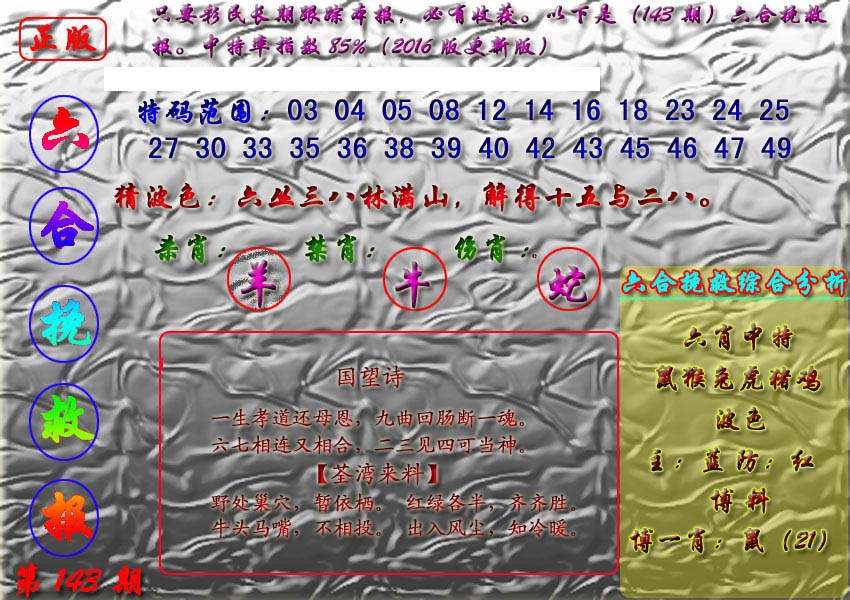 正版
只要彩民长期跟踪本报，必有收获。以下是（143 期）六合挽救
报。中特率指数 85%（2016 版更新版）
六合挽救报
第 143 期
特码范围：03 04 05 08 12 14 16 18 23 24 25
27 30 33 35 36 38 39 40 42 43 45 46 47 49
猜波色：六丛三八林满山，解得十五与二八。
杀肖：羊 禁肖：牛 伤肖：蛇。
国望诗
一生孝道还母恩，九曲回肠断一魂。
六七相连又相合，二三见四可当神。
【荃湾来料】
野处巢穴，暂依栖。 红绿各半，齐齐胜。
牛头马嘴，不相投。 出入风尘，知冷暖。
六合挽救综合分析
六肖中特
鼠猴兔虎猪鸡
波色
主：蓝防：红
博料
博一肖：鼠（21）